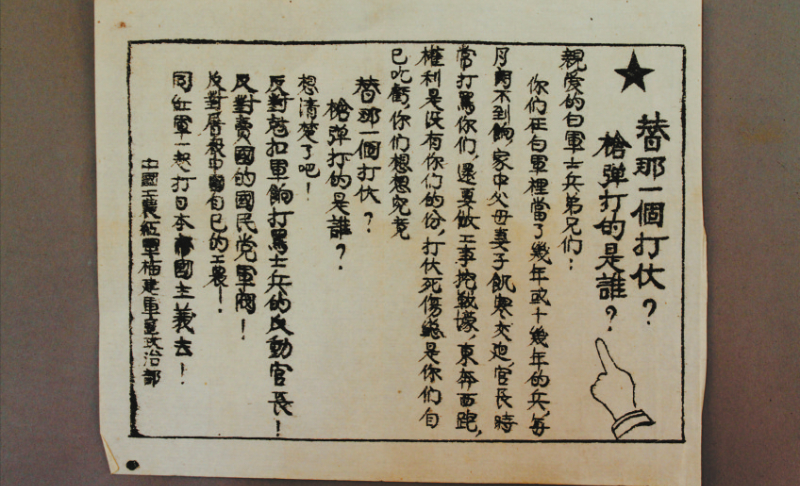 替那一個打仗?
槍彈打的是誰?
親愛的白軍士兵弟兄们:
你们在白軍裡當了幾年或十幾年的兵,每
月闹不到餉,家中父母妻子飢寒交迫,官長時
常打罵你们,還要做工事挖戰壕,東奔西跑,
權利是没有你们的份,打仗死傷總是你们自
己吃虧,你们想想究竟
替那一個打仗?
槍彈打的是誰?
想清楚了吧!
反對尅扣軍餉打罵士兵的反動官長!
反對賣國的國民党軍阀!
反對屠殺中國自己的工農!
同红軍一起打日本帝國主義去!
中國工農紅軍福建軍區政治部